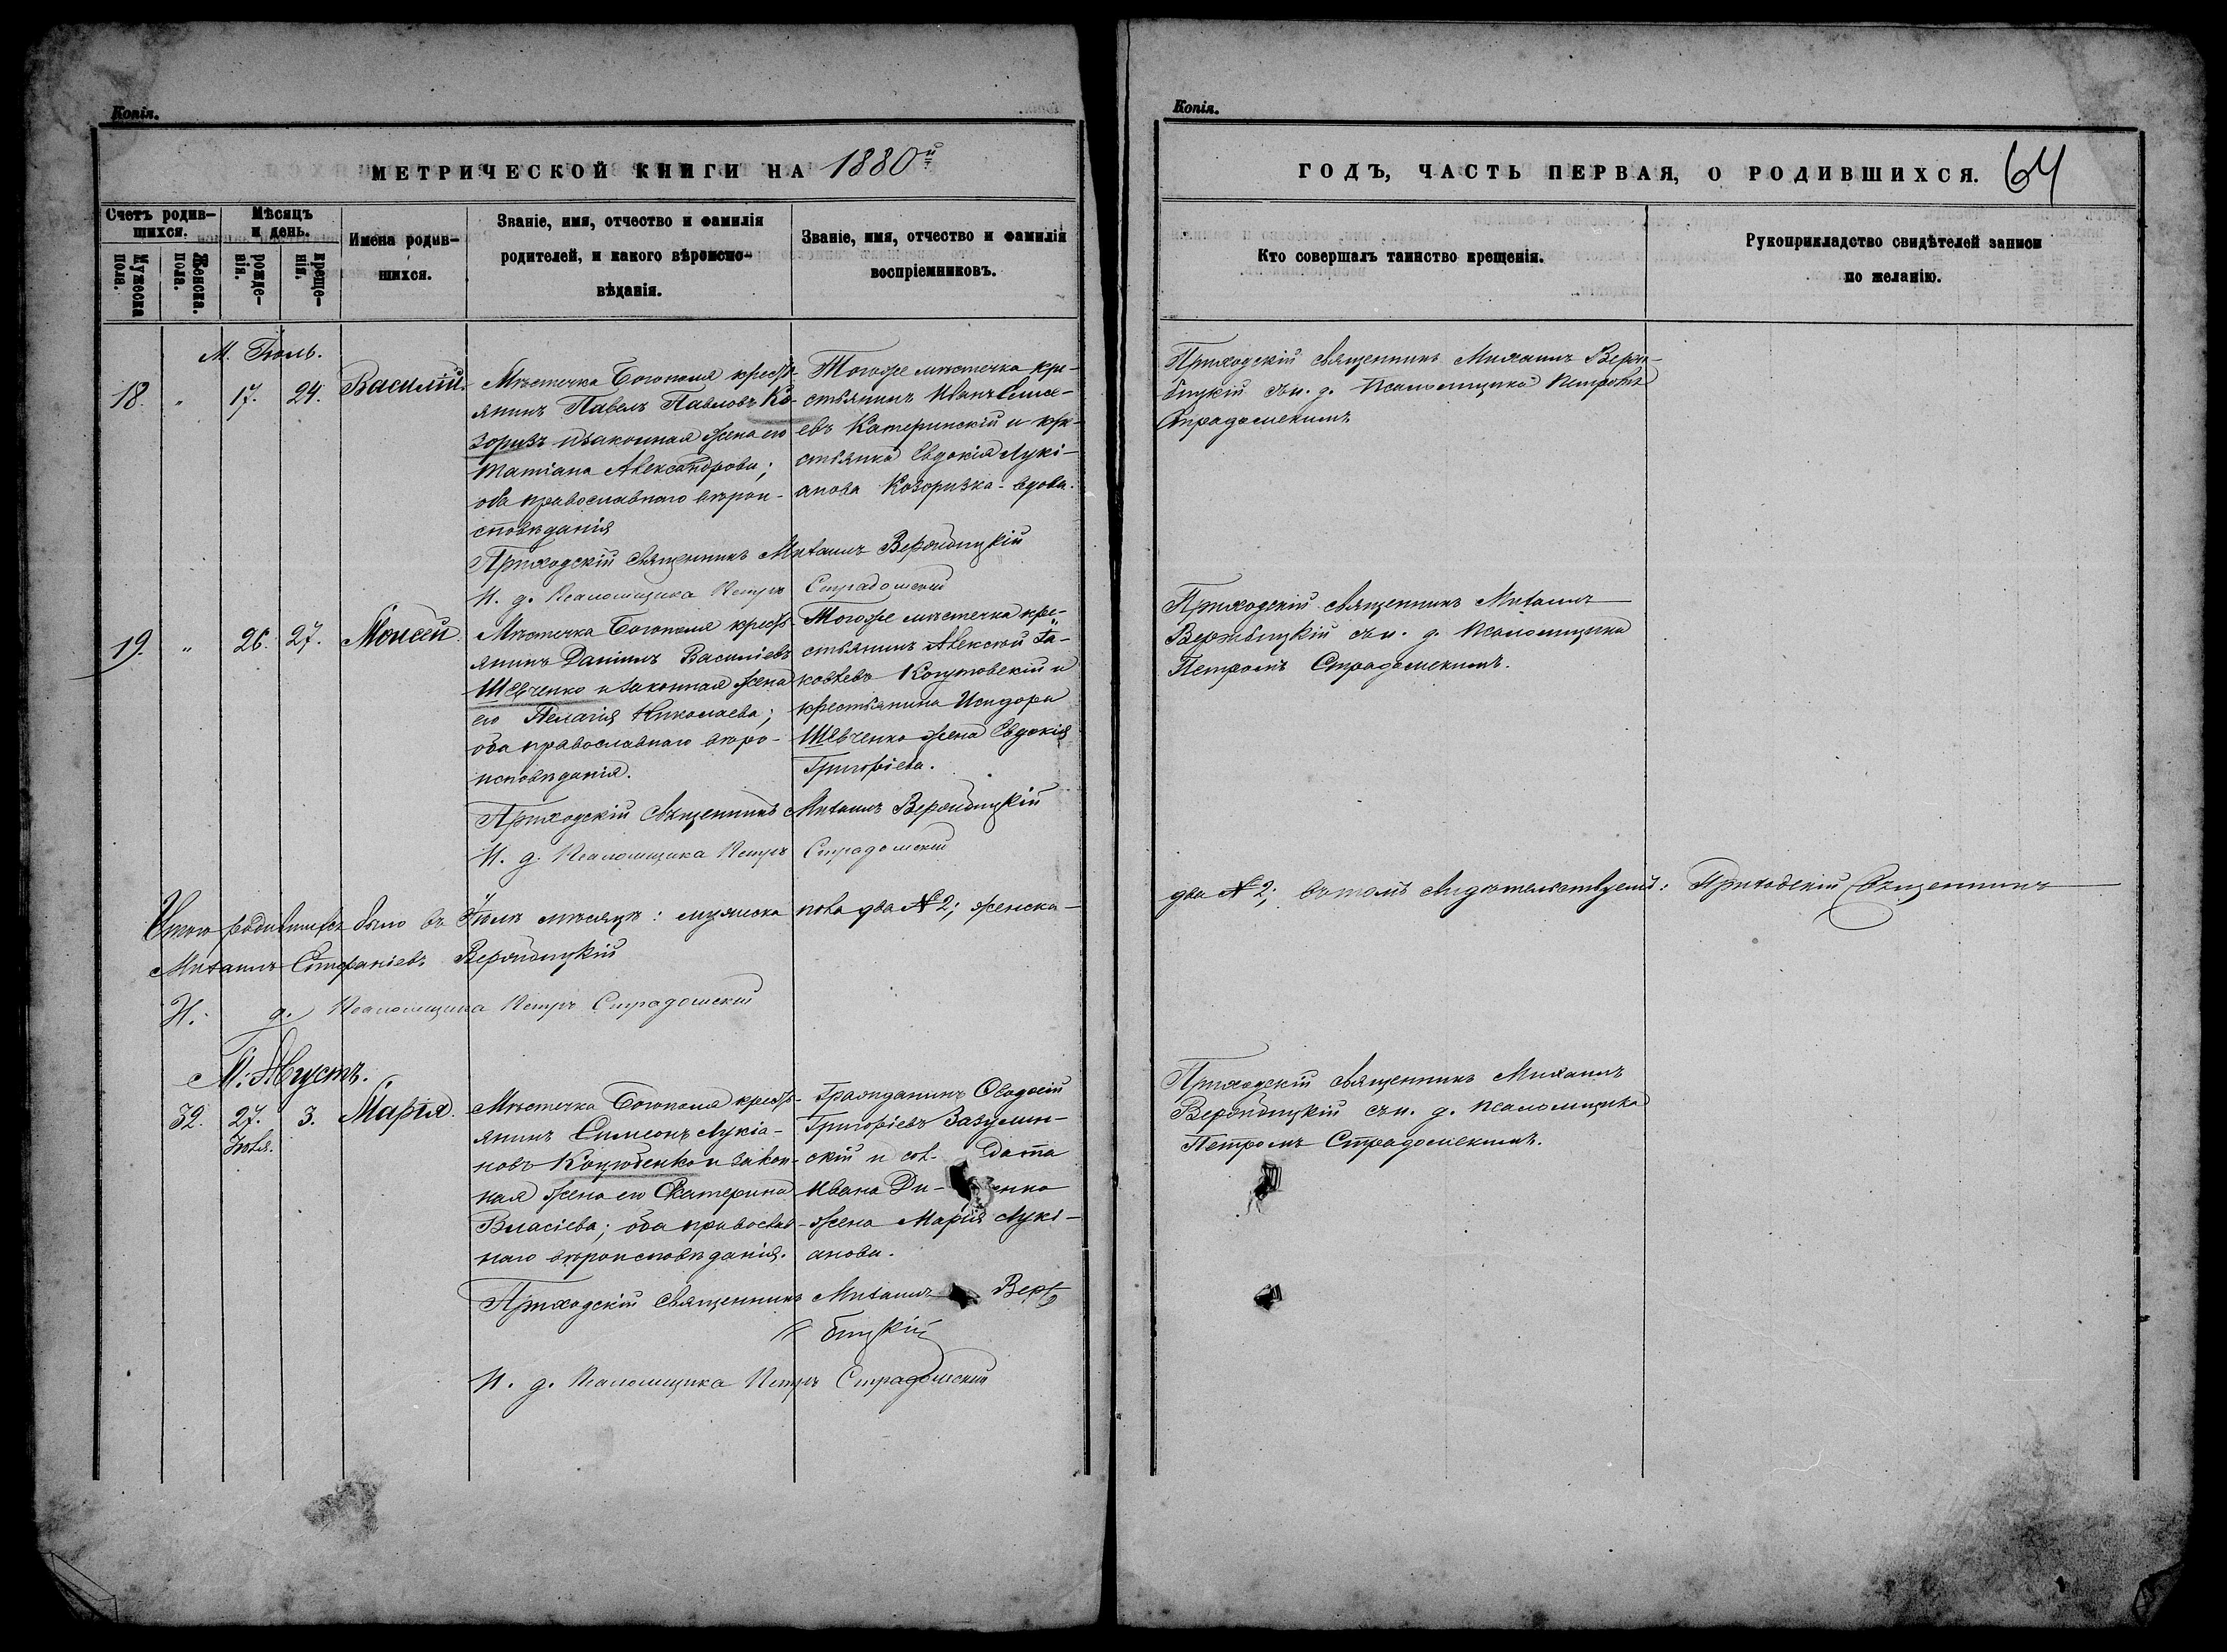 Копія.
МЕТРИЧЕСКОЙ КНИГИ НА 1880й
Счетъ родив-
шихся.
Мужеска
пола.
Женска.
пола.
Мѣсяцъ
и день.
рожде-
нія.
креще-
нія.
Имена родив-
шихся.
Званіе, имя, отчество и фамилія
родителей, и какого вѣроиспо-
вѣданія.
Званіе, имя, отчество и фамилія
воспріемниковъ.
М. Іюль.
18. " 17. 24. Василій.
Мѣстечка Богополя кресть-
янинъ Павелъ Павловъ Ко-
зоризъ и законная жена его
Татіана Александрова;
оба православнаго вѣрои-
сповѣданія
Тогоже мѣстечка кре-
стьянинъ Иванъ
евъ Катеринскій и кре-
стьянка Евдокія Лукі-
анова Козоризка - вдова.
Приходскій священникъ Михаилъ Вержбицкій
И. д. Псаломщика Петръ Страдомскій
19. " 26. 27. Моисей.
Мѣстечка Богополя кресть-
янинъ Даніилъ Василіевъ
Шевченко и законная жена
его Пелагія Николаева;
оба православнаго вѣро-
исповѣданія.
Тогоже мѣстечка кре-
стьянинъ Алексѣй Іа-
ковлевъ и
крестьянина Исидора
Шевченко жена Евдокія
Григоріева.
Приходскій Священникъ Михаилъ Вержбицкій
И. д. Псаломщика Петръ Страдомскій
Итого родившихся было въ Іюлѣ мѣсяцѣ: мужеска пола два № 2; женска
Михаилъ Стефаніевъ Вержбицкій
И. д. Псаломщика Петръ Страдомскій
М. Августъ.
32. 27. 3. Марія.
Іюля.
Мѣстечка Богополя кресть-
янинъ Симеонъ Лукіа-
новъ Коцюбенко и закон-
ная жена его Екатерина
Власіева; оба православ-
наго вѣроисповѣданія.
Гражданинъ Ѳеодосій
Григоріевъ
скій и
Ивана
жена Марія Лукі-
анова.
Приходскій священникъ Михаилъ Верж-
бицкій
И. д. Псаломщика Петръ Страдомскій
Копія.
ГОДЪ, ЧАСТЬ ПЕРВАЯ, О РОДИВШИХСЯ. 64
Кто совершалъ таинство крещенія.
Рукоприкладство свидѣтелей записи
по желанію.
Приходскій священникъ Михаилъ Верж-
бицкій съ и. д. Псаломщика Петромъ
Страдомскимъ
Приходскій священникъ Михаилъ
Вержбицкій съ и. д. Псаломщика
Петромъ Страдомскимъ.
два № 2; въ томъ свидѣтельствуемъ: Приходскій Священникъ
Приходскій священникъ Михаилъ
Вержбицкій съ и. д. Псаломщика
Петромъ Страдомскимъ.